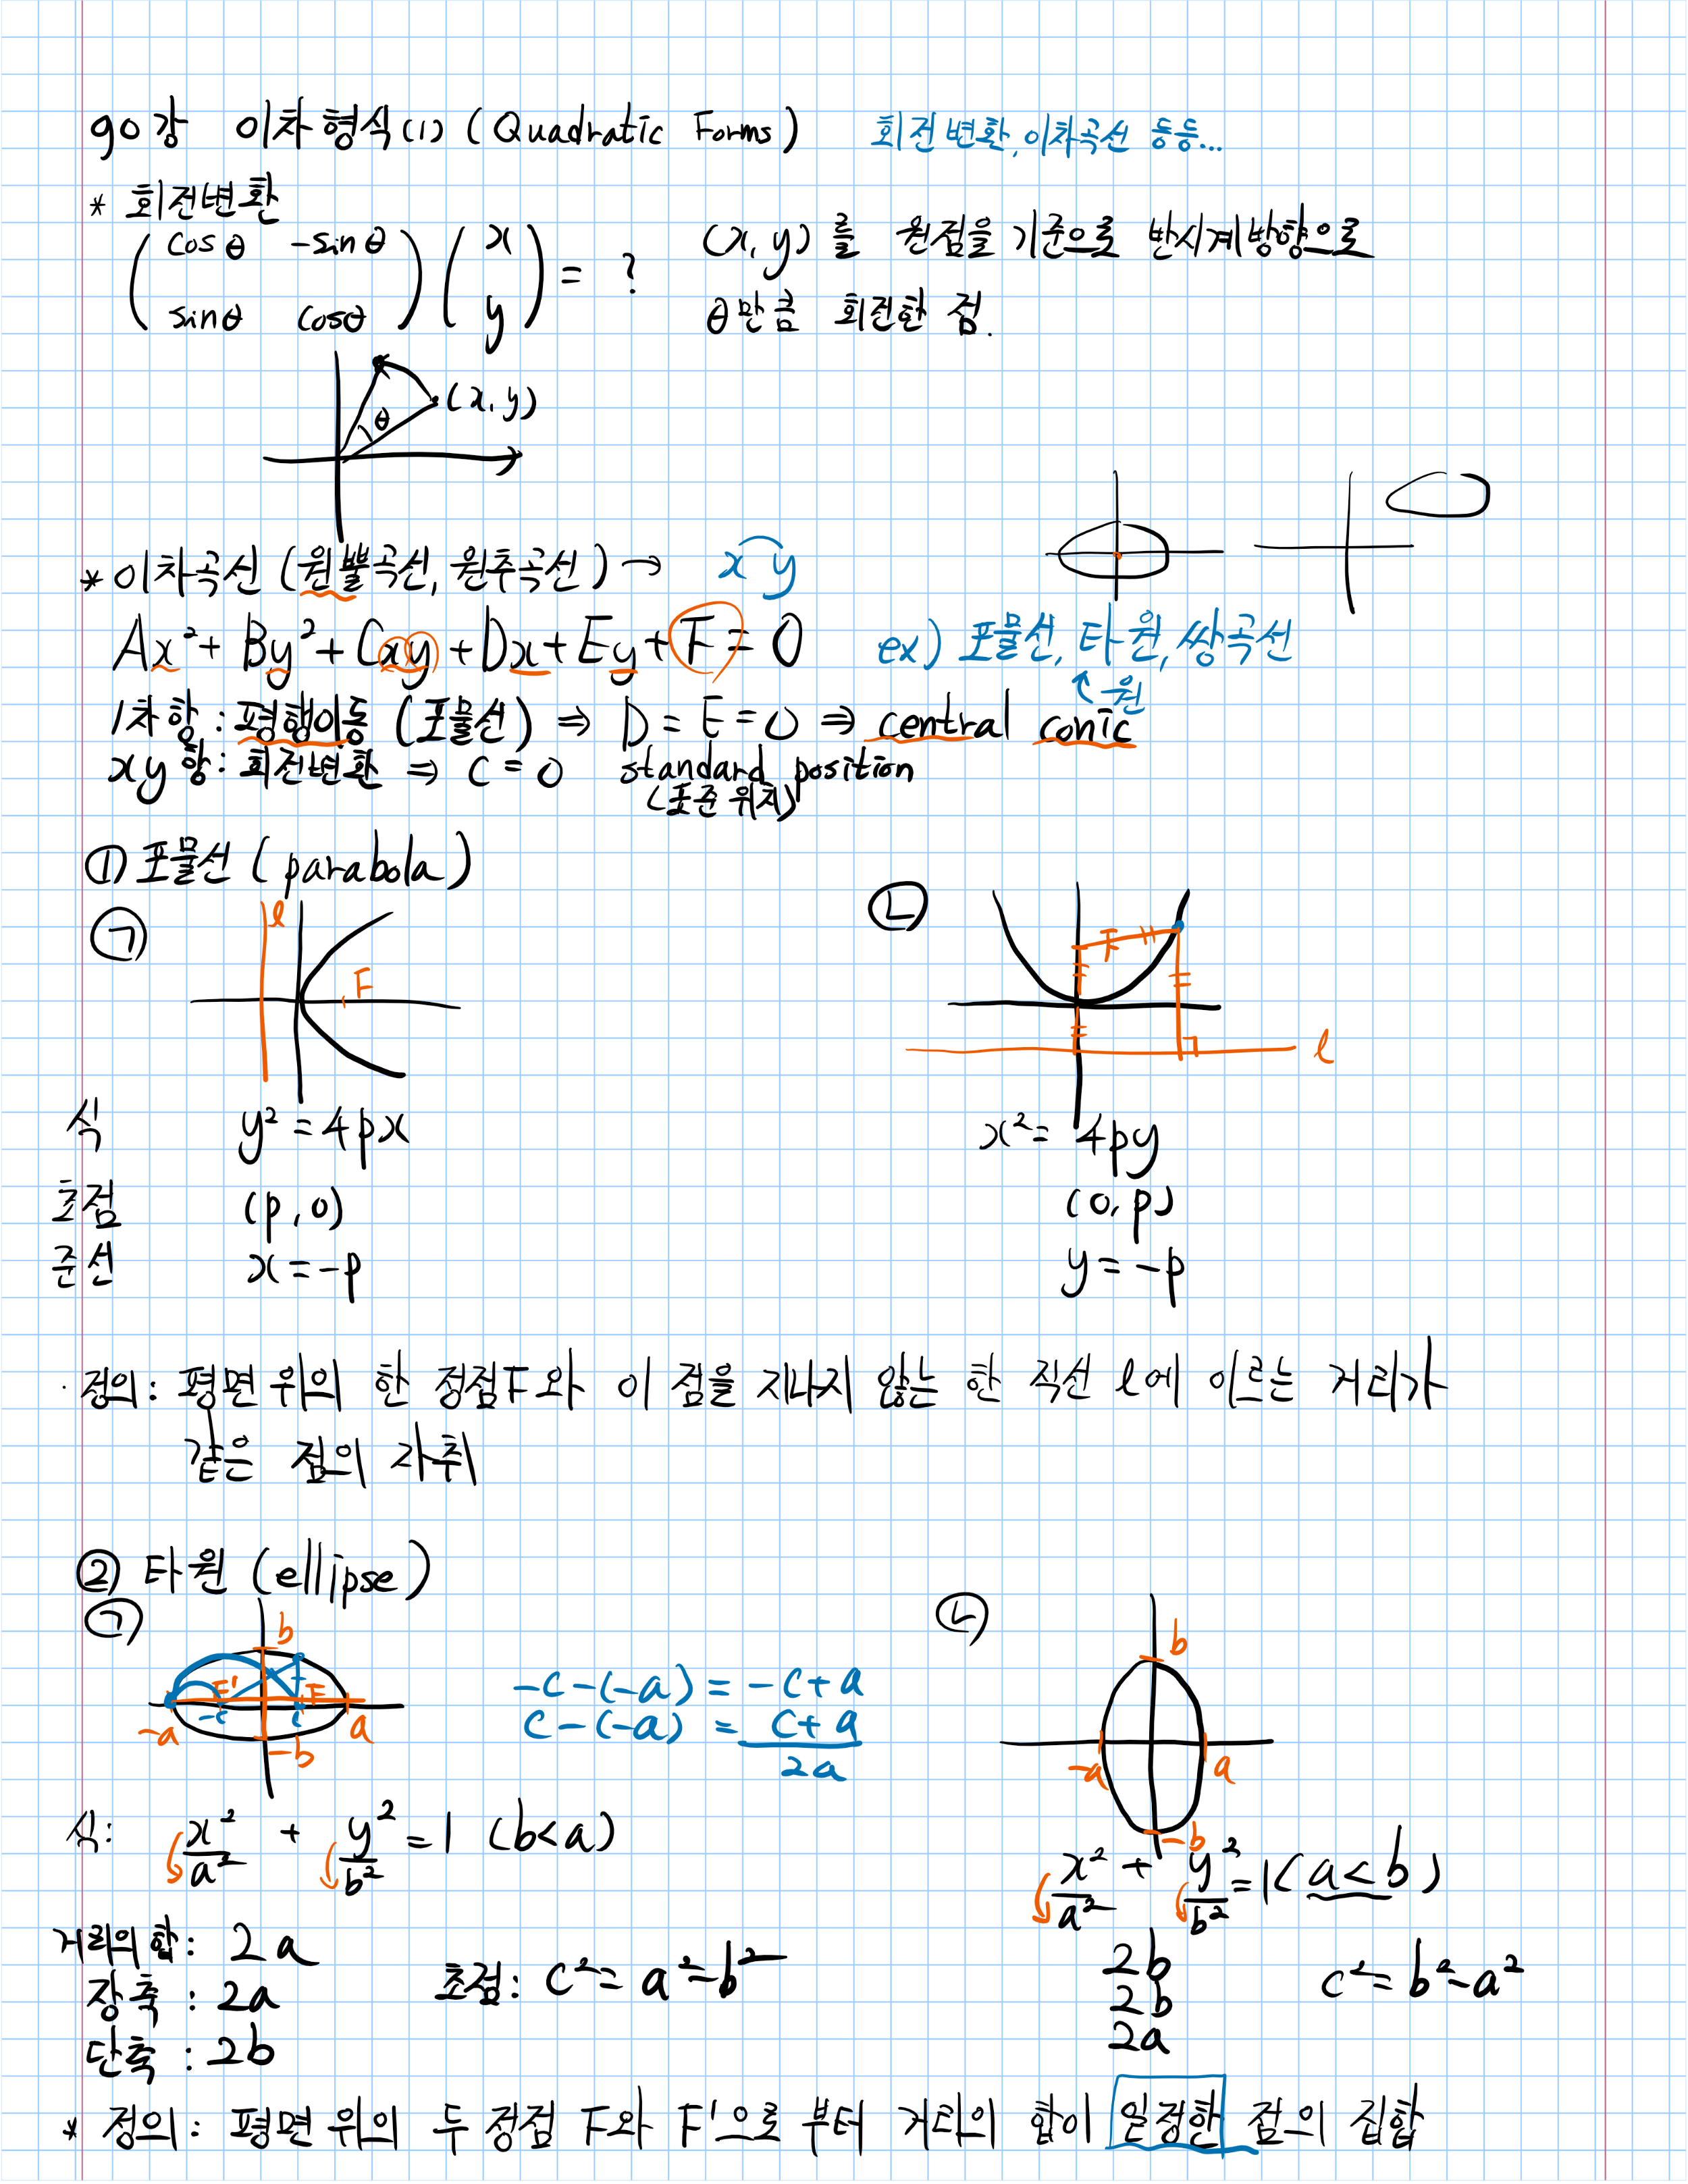 90강 이차형식(1) (Quadratic Forms) 회전변환, 이차곡선 등등...
* 회전변환
( cosθ -sinθ ) ( x ) = ? (x, y)를 원점을 기준으로 반시계방향으로
( sinθ cosθ ) ( y ) θ만큼 회전한 점.
θ (x, y)
* 이차곡선 (원뿔곡선, 원추곡선) → xy
Ax² + By² + Cxy + Dx + Ey + F = 0 ex) 포물선, 타원, 쌍곡선
↖원
1차항 : 평행이동 (포물선) ⇒ D = E = 0 ⇒ central conic
xy항 : 회전변환 ⇒ C = 0 standard position
(표준 위치)
① 포물선 (parabola)
㉠ l F ㉡ F l
식 y² = 4px x² = 4py
초점 (p, 0) (0, p)
준선 x = -p y = -p
· 정의 : 평면 위의 한 정점F와 이 점을 지나지 않는 한 직선 l에 이르는 거리가
같은 점의 자취
② 타원 (ellipse)
㉠ b F' F -c c -a a -b ㉡ b -a a -b
-c-(-a) = -c+a
c-(-a) = c+a
2a
식: x²/a² + y²/b² = 1 (b<a) x²/a² + y²/b² = 1 (a<b)
거리의합: 2a 2b
초점: c² = a²-b² c² = b²-a²
장축 : 2a 2b
단축 : 2b 2a
* 정의 : 평면 위의 두 정점 F와 F'으로 부터 거리의 합이 일정한 점의 집합